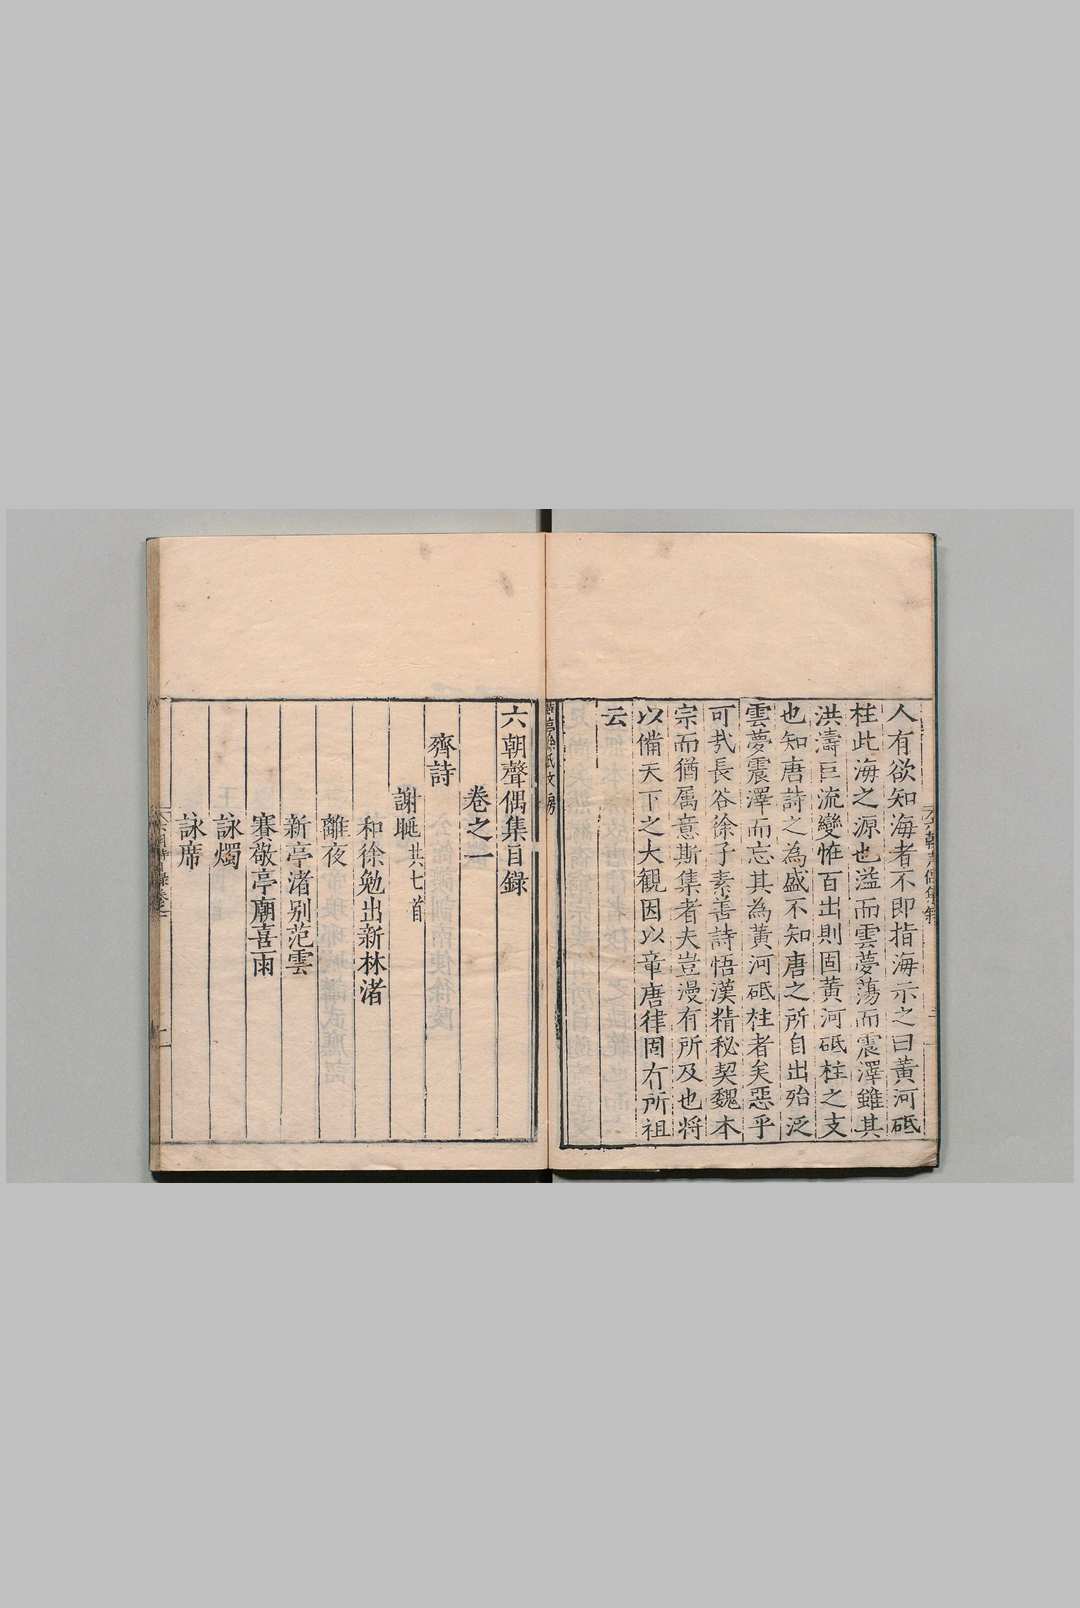 人有欲知海者不即指海示之曰黃河砥
柱此海之源也溢而雲夢蕩而震澤雖其
洪濤巨流變恠百出則固黃河砥柱之支
也知唐詩之為盛不知唐之所自出殆泛
雲夢震澤而忘其為黃河砥柱者矣惡乎
可㢤長谷徐子素善詩悟漢精秘契魏本
宗而猶属意斯集者夫豈漫有所及也將
以備天下之大観因以章唐律固有所祖
云
六朝聲偶集目録
卷之一
齊詩
謝眺共七首
和徐勉出新林渚
離夜
新亭渚别范雲
賽敬亭廟喜雨
詠燭
詠席